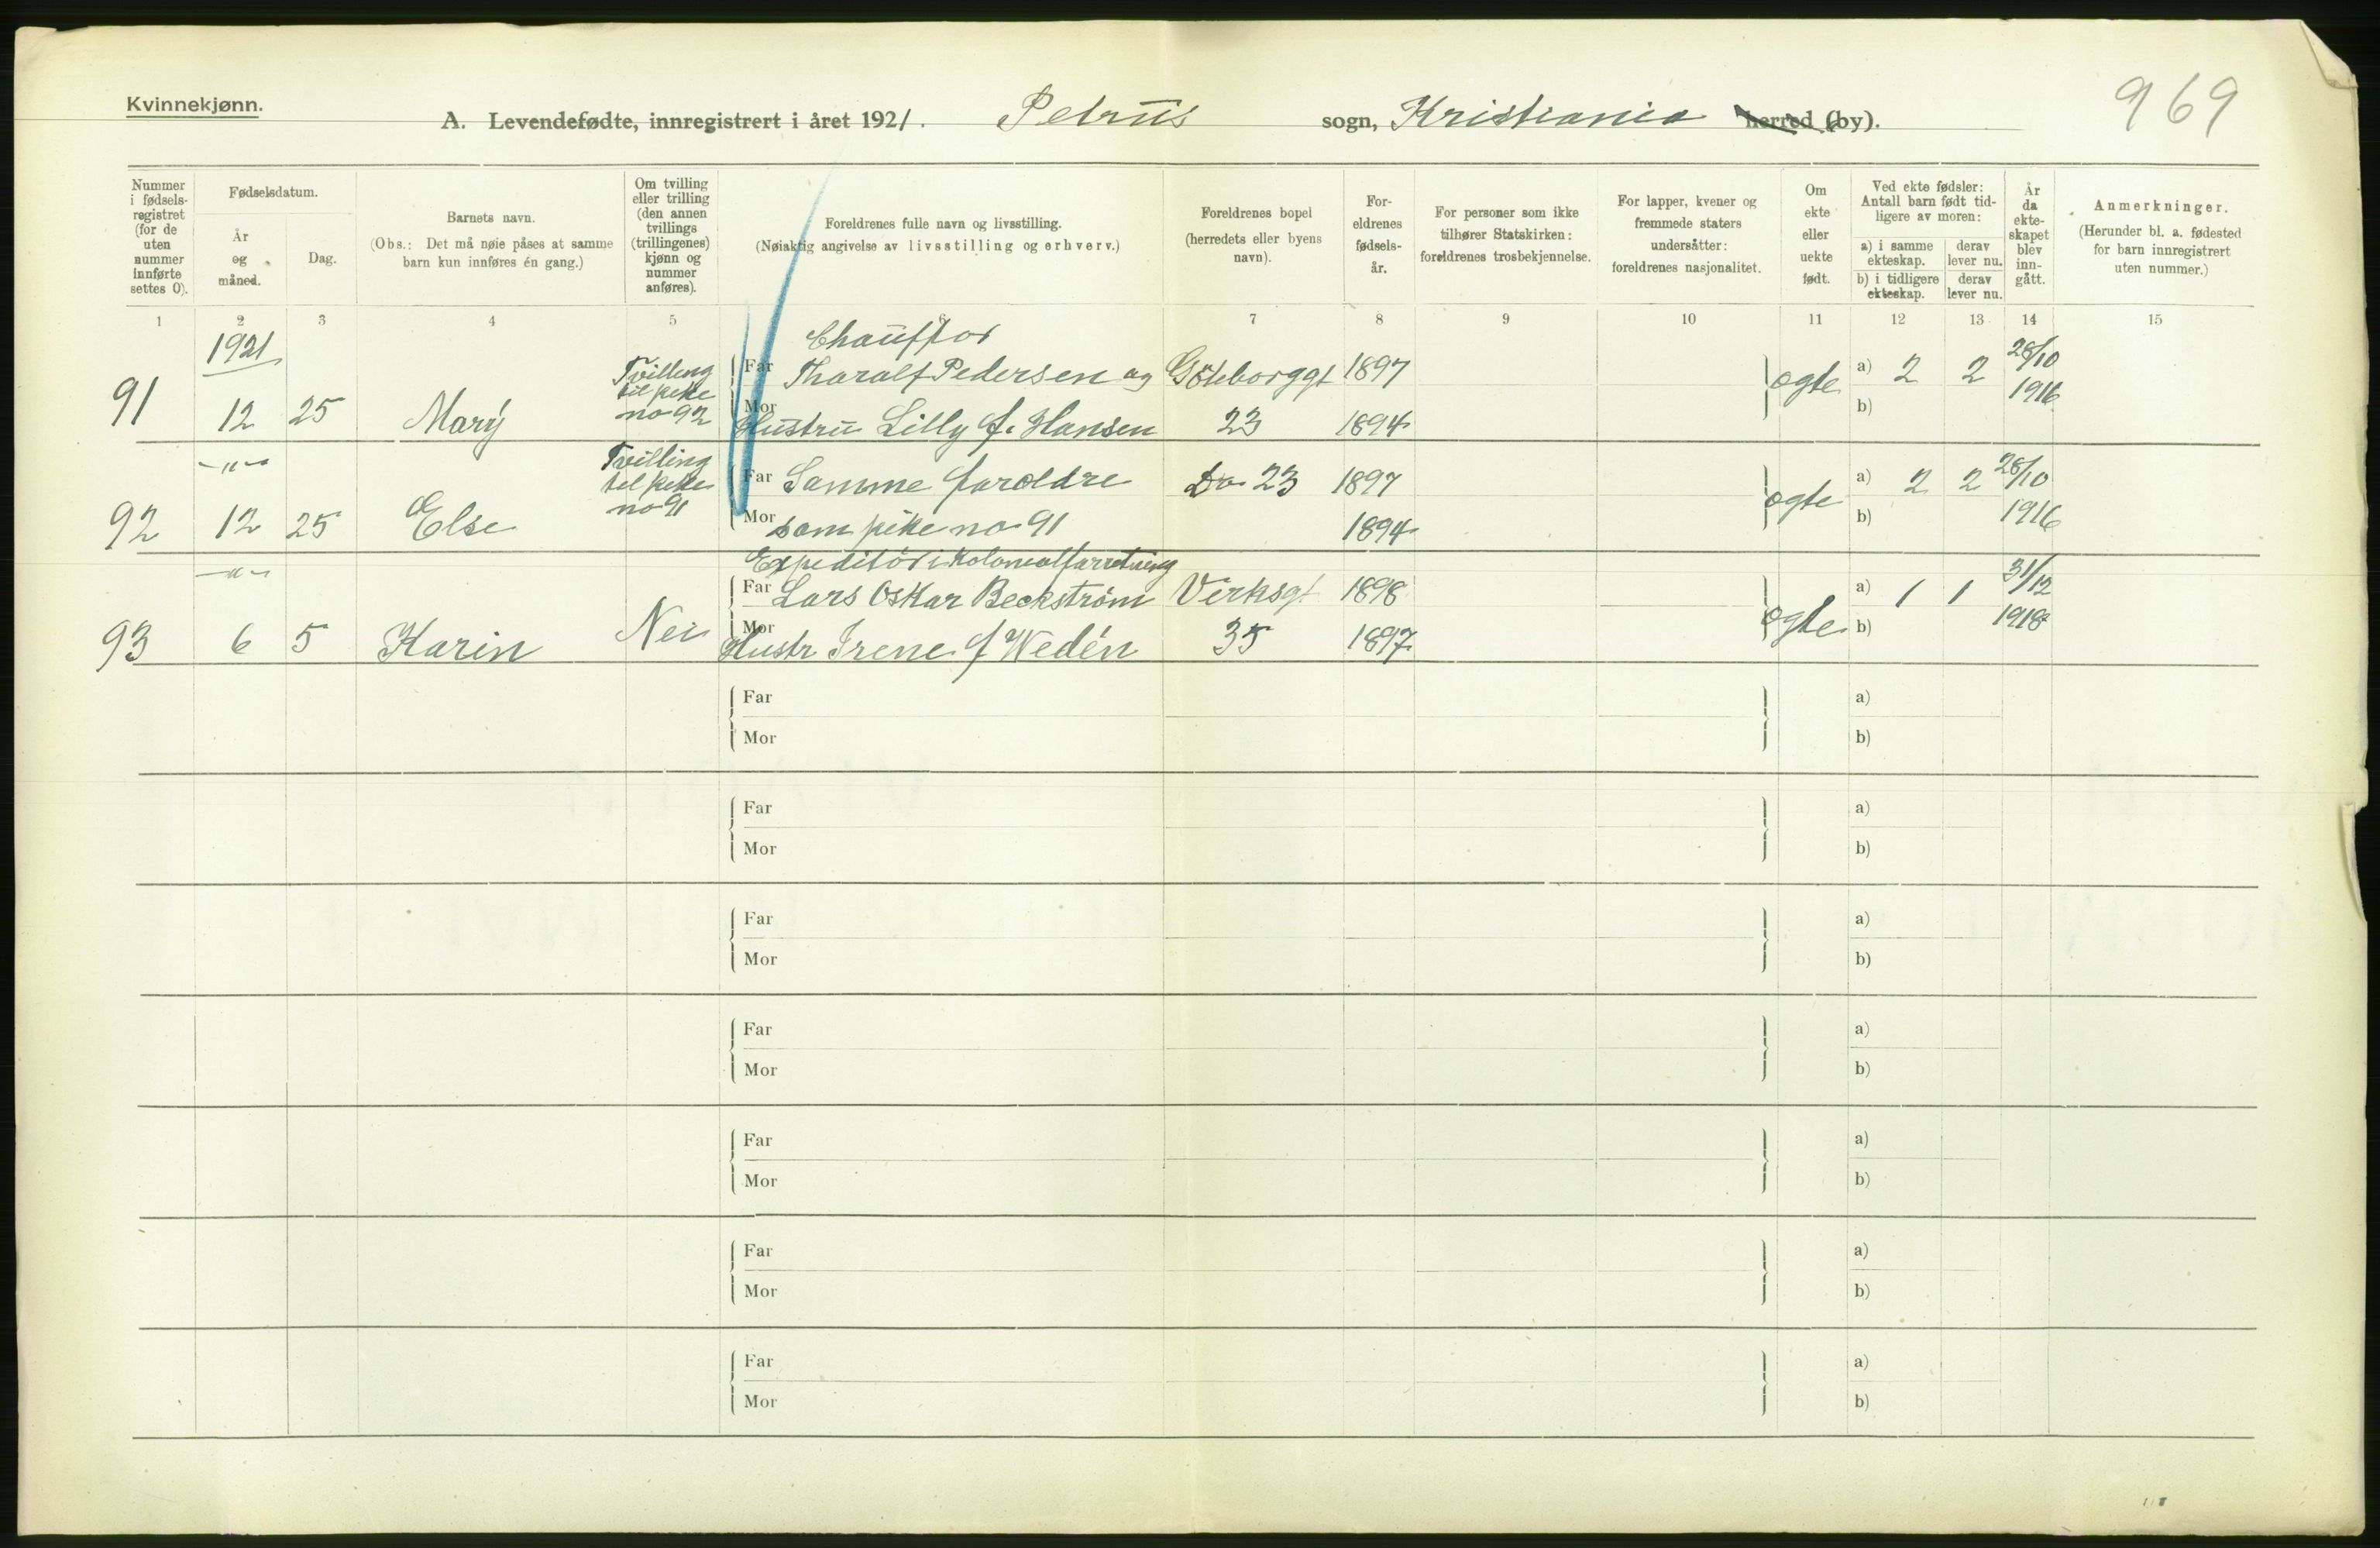 Kvinnekjønn.
969
A. Levendefødte, innregistrert i året 1921. Petrus sogn, Kristiania herred (by).
Nummer i fødsels-registret (for de uten nummer innførte settes 0).
Fødselsdatum.
År og måned.
Dag.
Barnets navn.
(Obs.: Det må nøie påses at samme barn kun innføres én gang.)
Om tvilling eller trilling (den annen tvillings (trillingenes) kjønn og nummer anføres).
Foreldrenes fulle navn og livsstilling.
(Nøiaktig angivelse av livsstilling og erhverv.)
Foreldrenes bopel (herredets eller byens navn).
For-eldrenes fødsels-år.
For personer som ikke tilhører Statskirken: foreldrenes trosbekjennelse.
For lapper, kvener og fremmede staters undersåtter: foreldrenes nasjonalitet.
Om ekte eller uekte født.
Ved ekte fødsler: Antall barn født tid-ligere av moren:
a) i samme ekteskap.
derav lever nu.
b) i tidligere ekteskap.
derav lever nu.
År da ekte-skapet blev inn-gått.
Anmerkninger.
(Herunder bl. a. fødested for barn innregistrert uten nummer.)
1 2 3 4 5 6 7 8 9 10 11 12 13 14 15
1921
Chauffør
91 12 25 Mary Tvilling til pike no 92
Far Tharalf Pedersen og Göteborggt 1897 ogte a) 2 2 28/10 1916
Mor Hustru Lilly f. Hansen 23 1894 b)
-"-
92 12 25 Else Tvilling til pike no 91
Far Samme foroldre Do 23 1897 ogte a) 2 2 28/10 1916
Mor som pike no 91 1894 b)
-"-
Expeditör i Kolonialforretning
93 6 5 Karin Nei
Far Lars Oskar Beckström Verksgt 1898 ogte a) 1 1 31/12 1918
Mor Hustr Irene f Wedén 35 1897 b)
Far a)
Mor b)
Far a)
Mor b)
Far a)
Mor b)
Far a)
Mor b)
Far a)
Mor b)
Far a)
Mor b)
Far a)
Mor b)